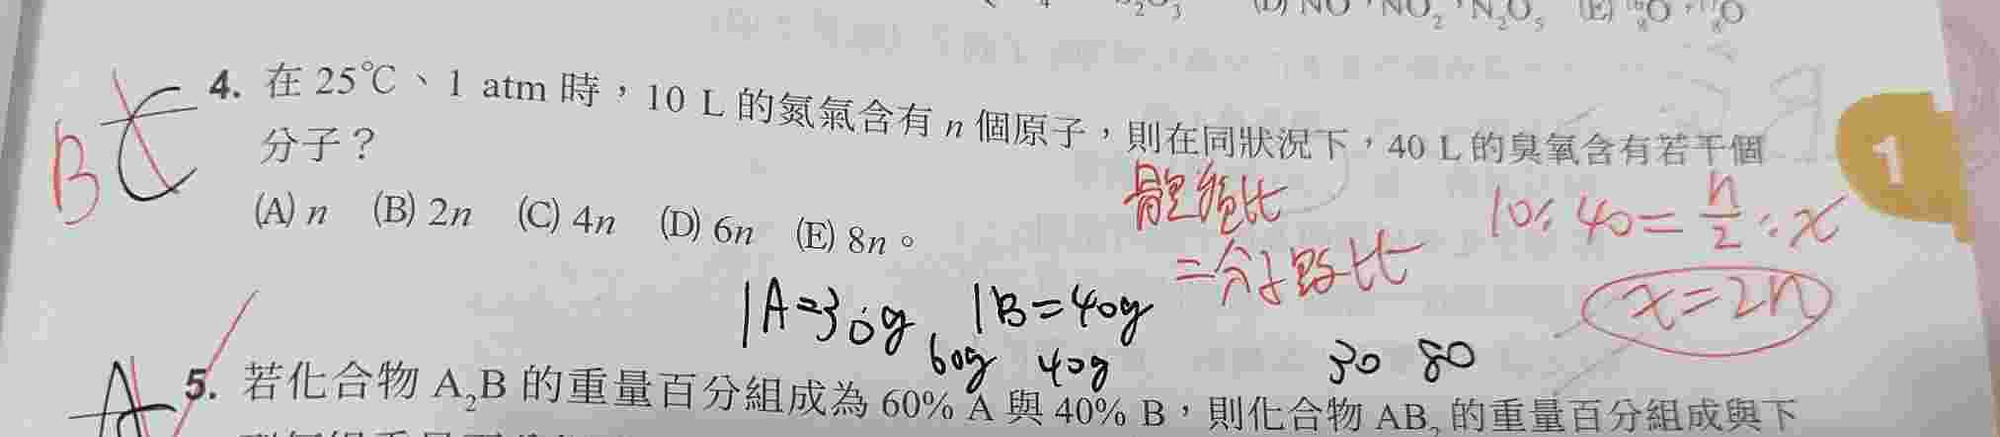 (D) NO、NO₂、N₂O₅ (E)
B C 4. 在 25℃、1 atm 時，10 L 的氮氣含有 n 個原子，則在同狀況下，40 L 的臭氧含有若干個
分子？
體積比 10:40=n/2:x
(A) n (B) 2n (C) 4n (D) 6n (E) 8n。
=分子數比
x=2n
1
1A=30g 1B=40g
60g 40g 30 80
A 5. 若化合物 A₂B 的重量百分組成為 60% A 與 40% B，則化合物 AB₂ 的重量百分組成與下